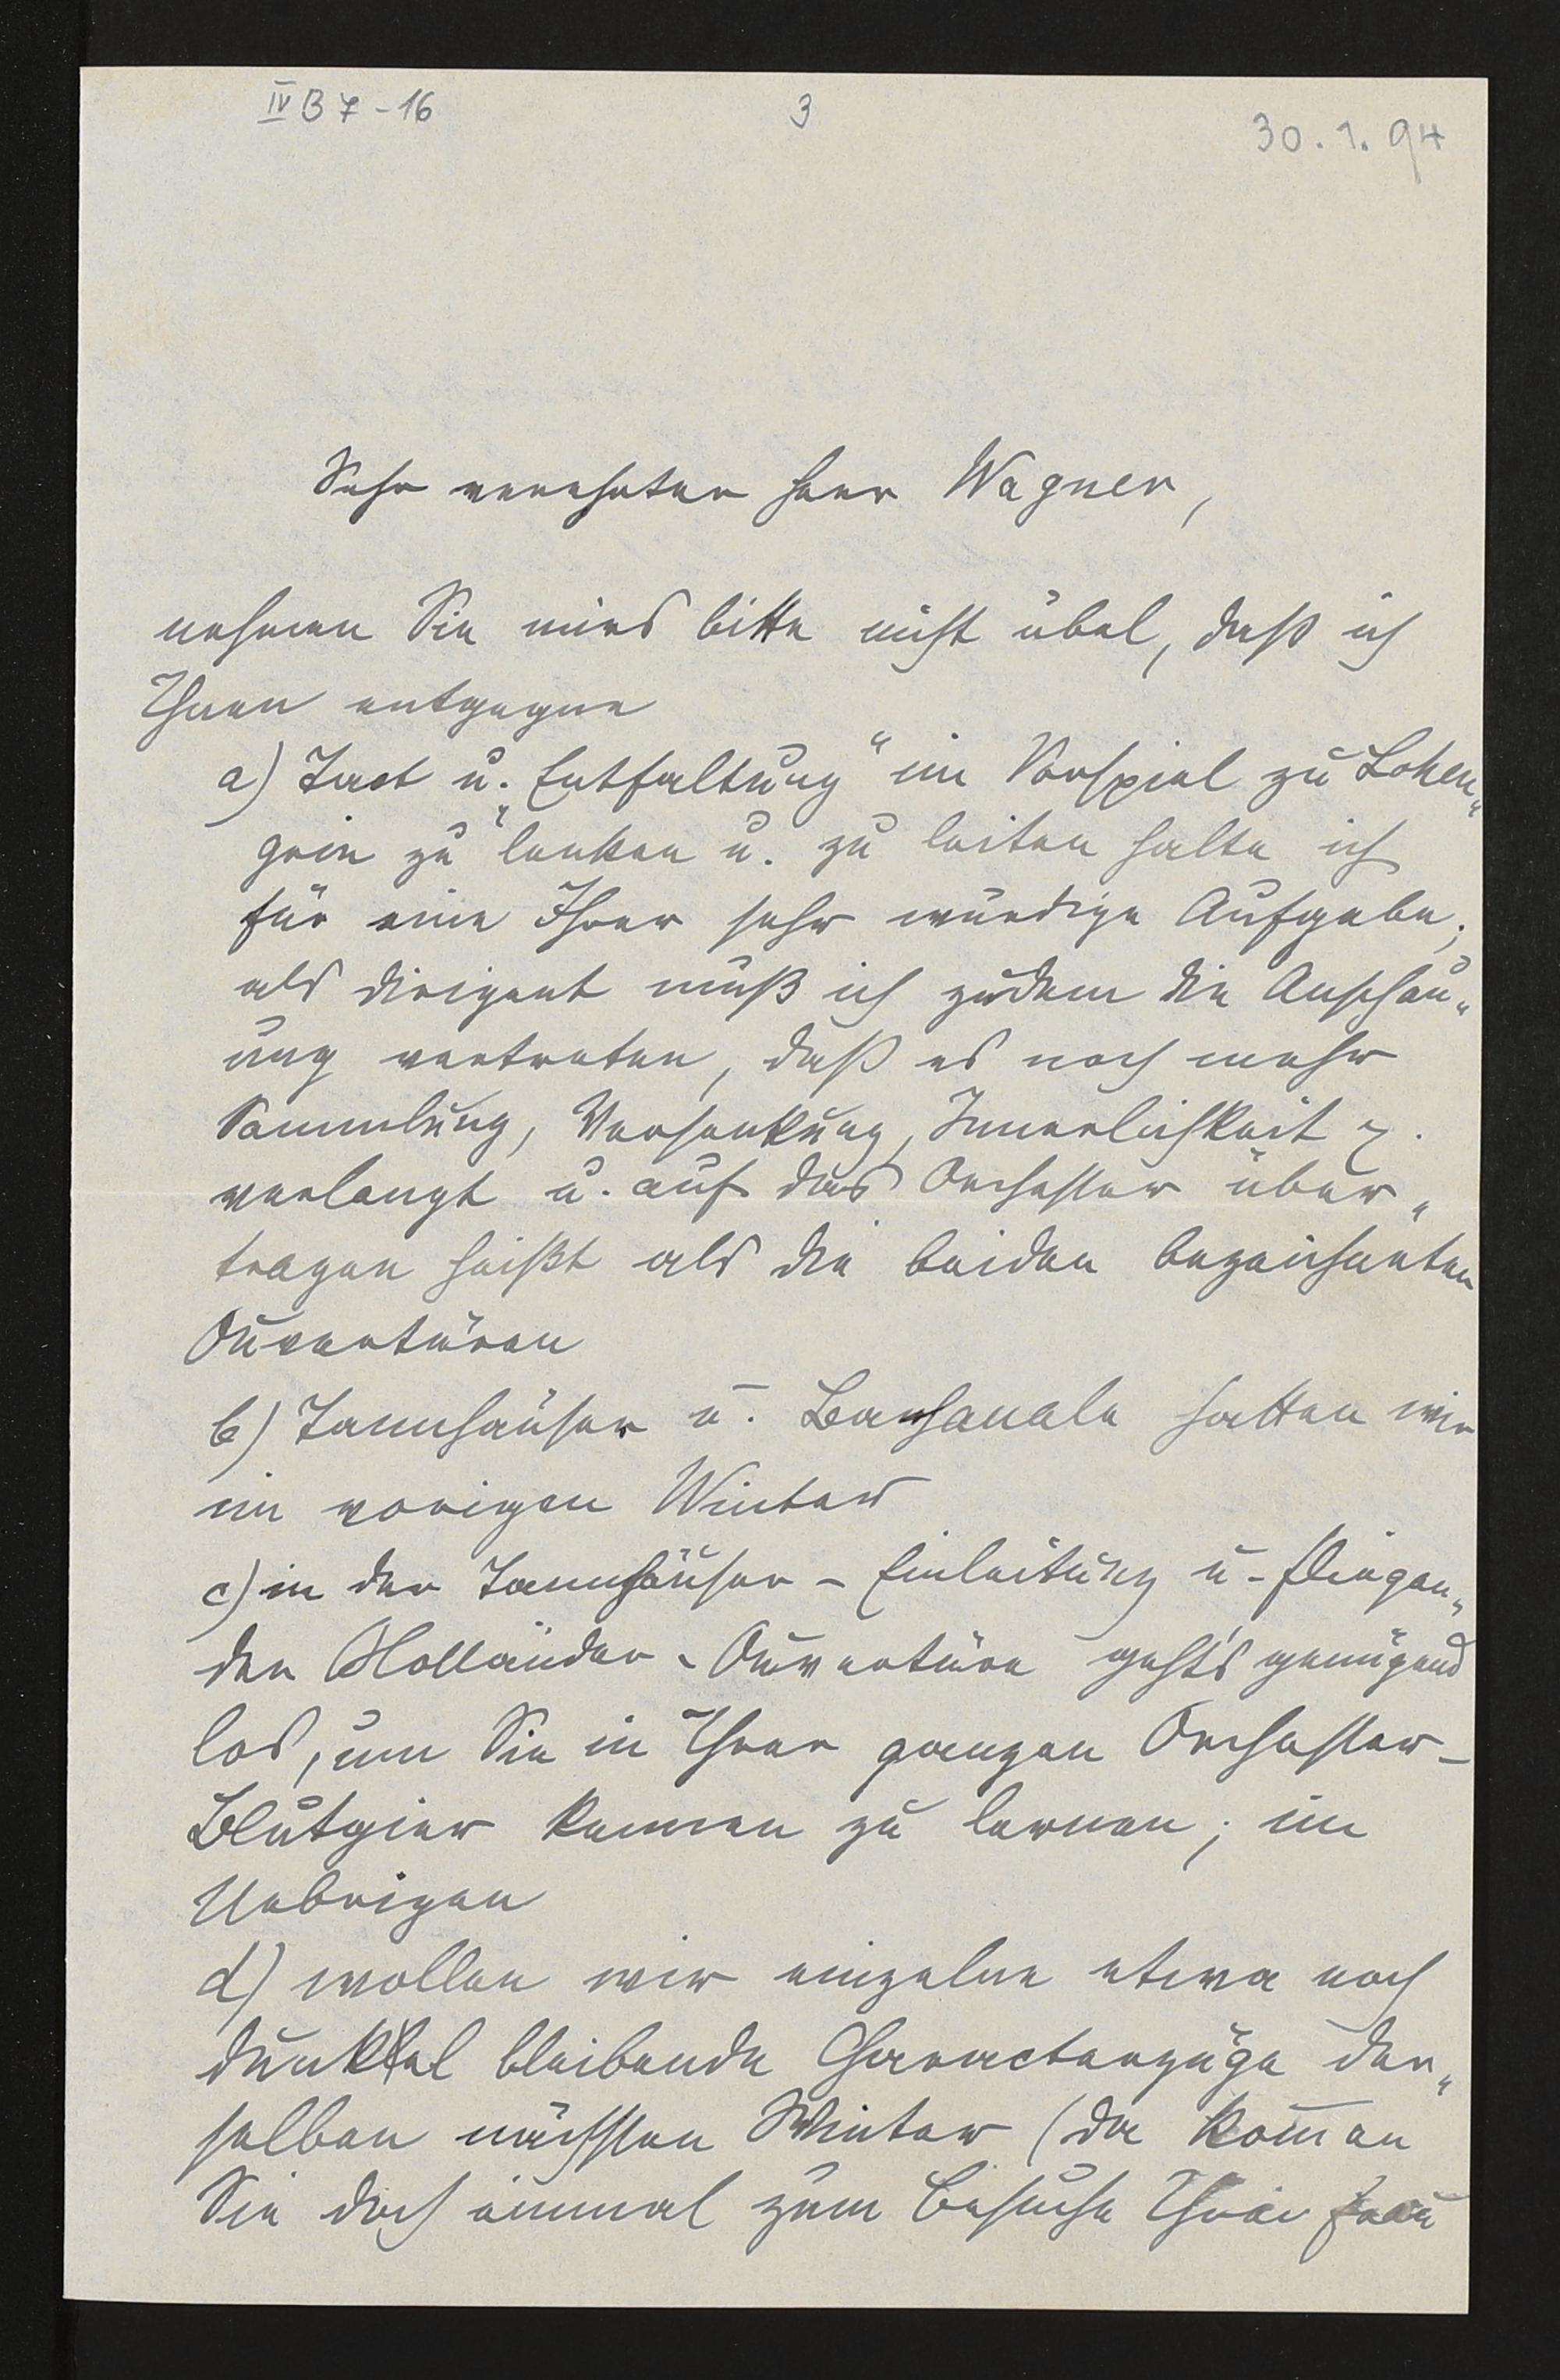 IV B 7-16
3
30.1.94
Sehr verehrter Herr Wagner,
nehmen Sie mirs bitte nicht übel, daß ich
Ihnen entgegne
a) Tact u. „Entfaltung“ im Vorspiel zu Lohen„
grin zu lenken u. zu leiten halte ich
für eine Ihrer sehr würdige Aufgabe;
als Dirigent muß ich zudem die Anschau„
ung vertreten, daß es noch mehr
Sammlung, Versenkung, Innerlichkeit
verlangt u. auf das Orchester über„
tragen heißt als die beiden bezeichneten
Ouvertüren
b) Tannhäuser u. Bachanale hatten wir
im vorigen Winter
c) in der Tannhäuser - Einleitung u. fliegen„
den Holländer - Ouvertüre geht's genügend
los, um Sie in Ihrer ganzen Orchester-
Blutgier kennen zu lernen; im
Uebrigen
d) wollen wir einzelne etwa noch
dunkel bleibende Characterzüge der„
selben nächsten Winter (da kom̄en
Sie doch einmal zum Besuche Ihrer Frau